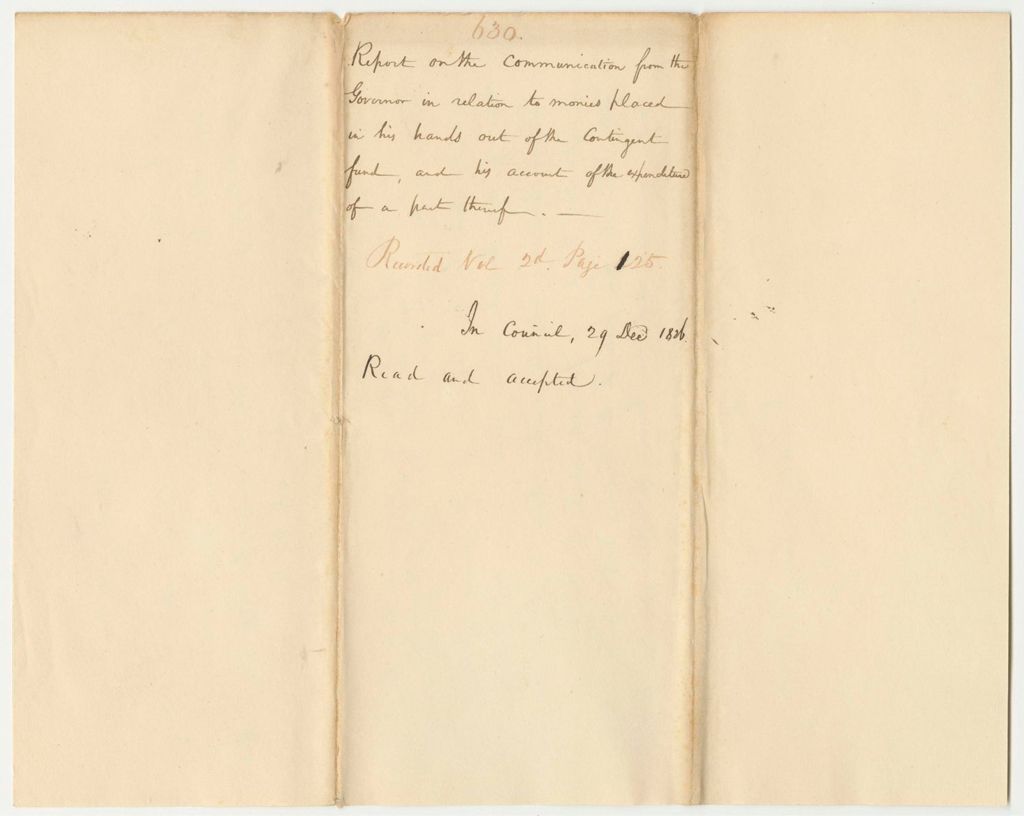 630.
Report on the Communication from the
Governor in relation to monies placed
in his hands out of the Contingent
fund, and his account of the expenditure
of a part thereof. —
Recorded Vol 2d. Page 125.
In Council, 29 Decr 1826.
Read and accepted.